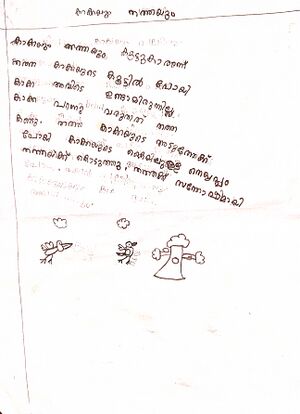 കാക്കയും തത്തയും
കാക്കയും തത്തയും കൂട്ടുകാരാണ്
തത്ത കാക്കയുടെ കൂട്ടിൽ പോയി
കാക്ക അവിടെ ഉണ്ടായിരുന്നില്ല
കാക്ക പറന്നു വരുന്നത് തത്ത
കണ്ടു. തത്ത കാക്കയുടെ അടുത്തേക്ക്
പോയി കാക്കയുടെ കൈയിലുള്ള നെയ്യപ്പം
തത്തയ്ക്ക് കൊടുത്തു, തത്തക്ക് സന്തോഷമായി